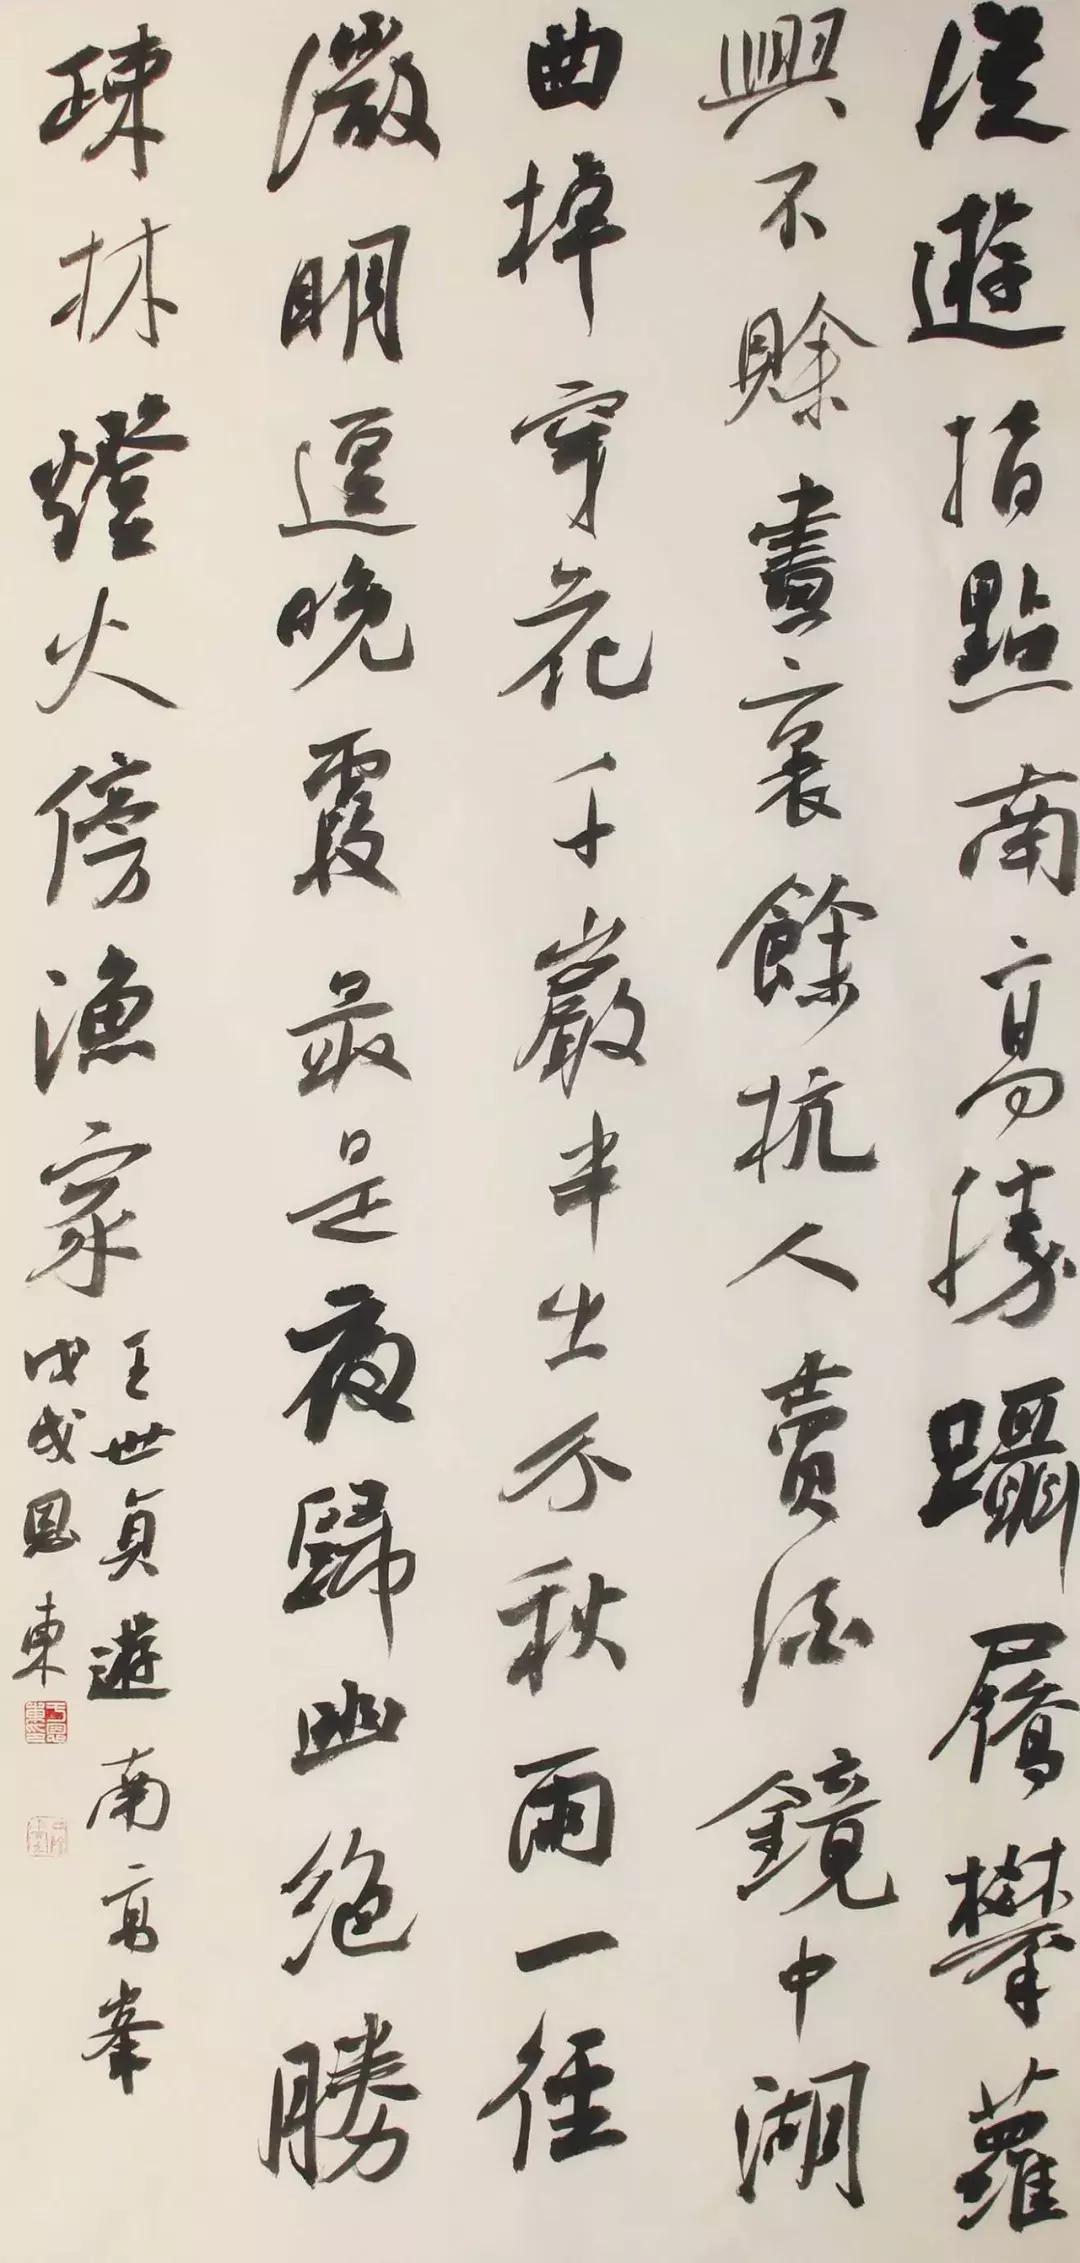 從遊指點南高勝躡屩攀蘿
興不賒畫裏餘杭人賣酒鏡中湖
曲棹穿花千巖半出分秋雨一徑
微明逗晚霞最是夜歸幽絕勝
疎林燈火傍漁家
王世貞遊南高峯
戊戌恩東